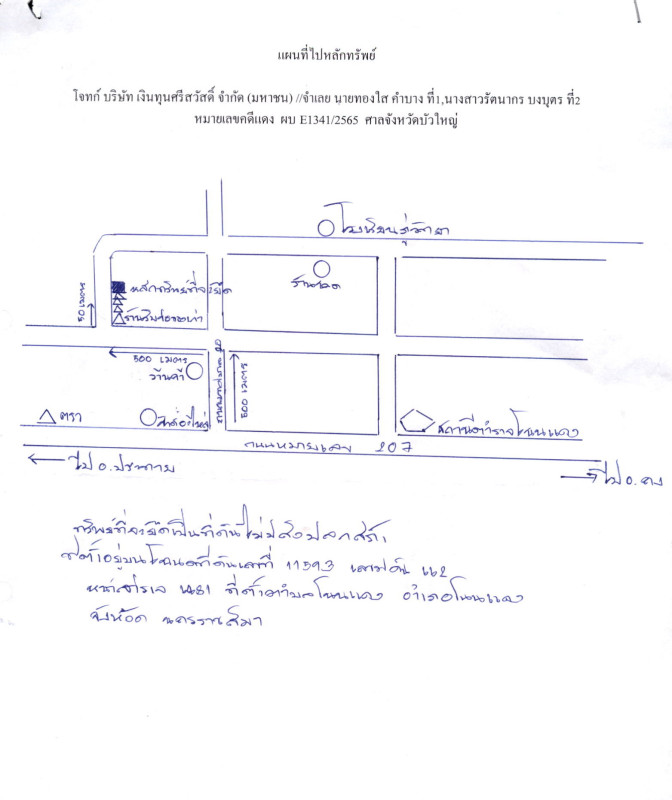 แผนที่ไปหลักทรัพย์
โจทก์ บริษัท เงินทุนศรีสวัสดิ์ จำกัด (มหาชน) //จำเลย นายทองใส คำบาง ที่1,นางสาวรัตนากร บงบุตร ที่2
หมายเลขคดีแดง ผบ E1341/2565 ศาลจังหวัดบัวใหญ่
หลักทรัพย์ที่จะยึด
50 เมตร
500 เมตร
500 เมตร
ร้านค้า
ตรา
สถานีตำรวจโนนแดง
ถนนหมายเลข 207
ไป อ.ประทาย
ไป อ.คง
ทรัพย์ที่จะยึดเป็นที่ดินไม่มีสิ่งปลูกสร้าง
ตั้งอยู่บนโฉนดที่ดินเลขที่ 11593 เลขที่ดิน 112
หน้าสำรวจ 1481 ที่ตั้งตำบลโนนแดง อำเภอโนนแดง
จังหวัด นครราชสีมา